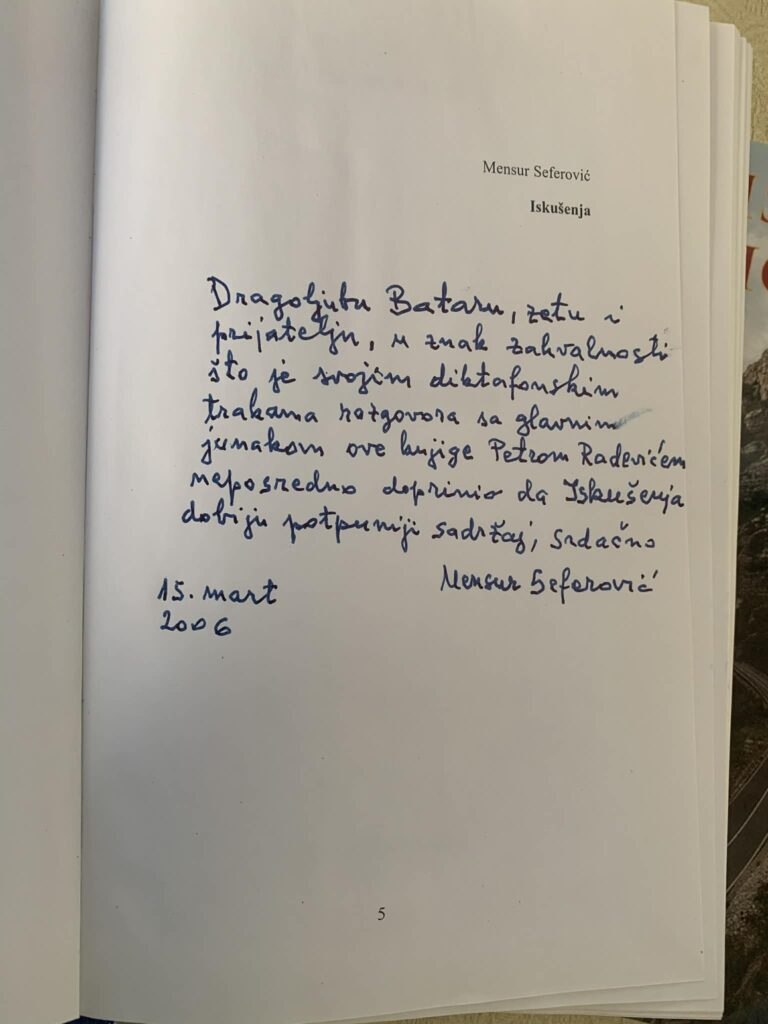 Mensur Seferović
Iskušenja
Dragoljubu Bataru, zetu i
prijatelju, u znak zahvalnosti
što je svojim diktafonskim
trakama razgovora sa glavnim
junakom ove knjige Petrom Radevićem
neposredno doprinio da Iskušenja
dobiju potpuniji sadržaj, srdačno
Mensur Seferović
15. mart
2006
5